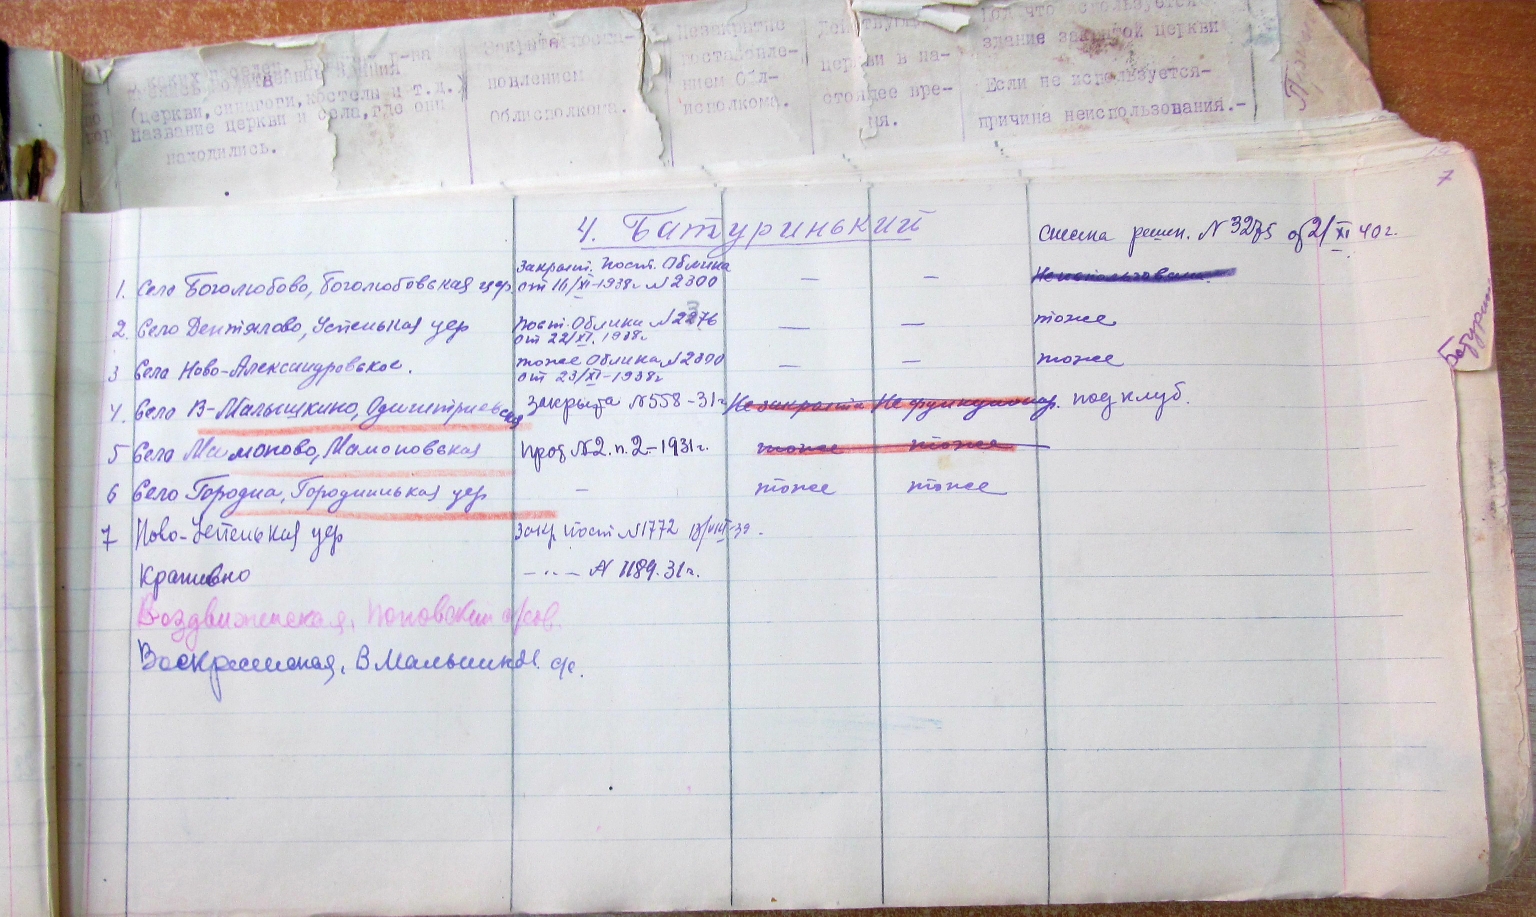 (церкви, синагоги, костелы и т.д.)
название церкви и села, где они
находились.
Закрыта поста-
новлением
Облисполкома.
Незакрытые
постановле-
нием Обл-
исполкома.
Действующие
церкви в на-
стоящее вре-
мя.
здание закрытой церкви
Если не используется-
причина неиспользования.-
7
4. Батуринький
снесена решен. №3275 от 2/XI 40 г.
1. Село Боголюбово, Боголюбовская цер.
Закрыт. Пост. Облика
от 16/XI-1938г №2300
— —
Неиспользован
2. Село Дентялово, Успенькая цер
Пост. Облика №2276
от 22/XI. 1938г
— —
тоже
3 Села Ново-Александровское.
тоже Облика №2300
от 23/XI-1938г
— —
тоже
4. Село В-Малышкино, Одигитриевская
Закрыта №558-31г
Не закрыта Не функционир.
под клуб.
5 Села Мамоново, Мамоновская
Прот №2. п. 2-1931г.
тоже тоже
6 Село Городна, Городнинькая цер
—
тоже тоже
7 Ново-Успенькая цер
Закр пост №1772 13/VIII-39.
Крапивно
—··— № 1189. 31г.
Воздвиженская, Поповский с/сов.
Воскресенская, В Малышкин. с/с.
Батурин